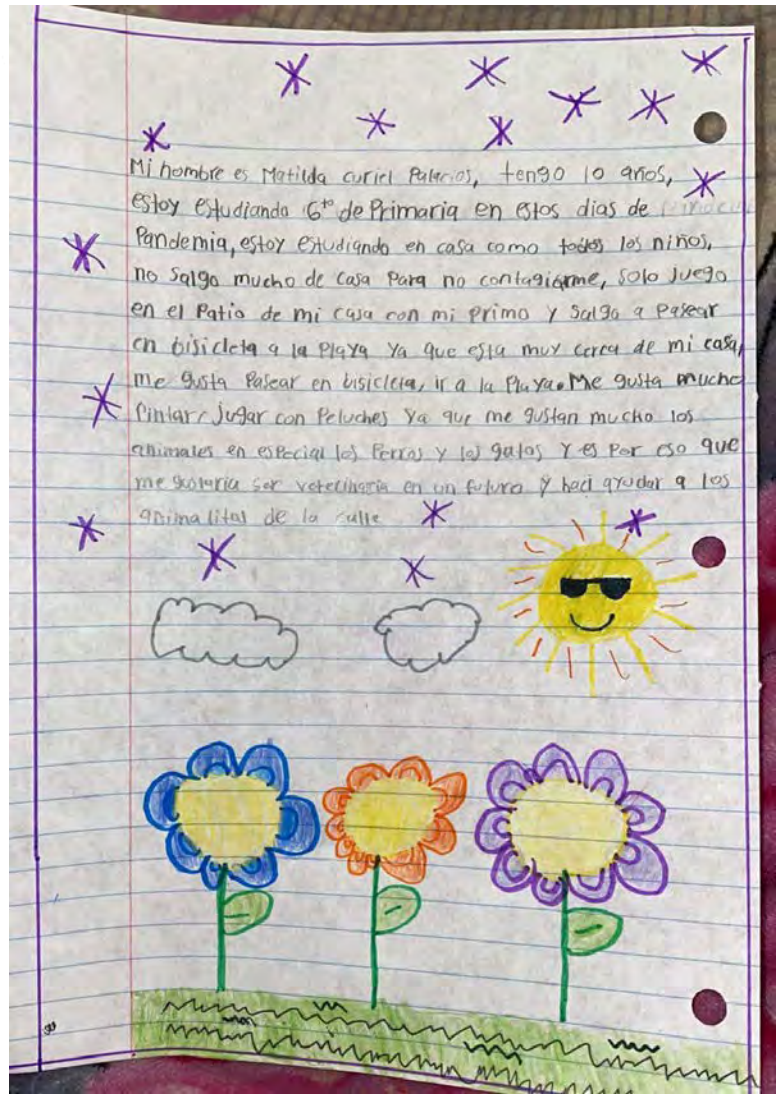 Mi nombre es Matilda curiel Palacios, tengo 10 años,
estoy estudiando 6to de Primaria en estos dias de
Pandemia, estoy estudiando en casa como todos los niños,
no salgo mucho de casa Para no contagiarme, solo juego
en el Patio de mi casa con mi Primo y salgo a Pasear
en bisicleta a la Playa Ya que esta muy cerca de mi casa,
me gusta Pasear en bisicleta, ir a la Playa. Me gusta mucho
Pintar, jugar con Peluches Ya que me gustan mucho los
animales en especial los Perros y los gatos Y es Por eso que
me gustaria ser vetecinaria en un futuro y haci ayudar a los
animalitos de la calle